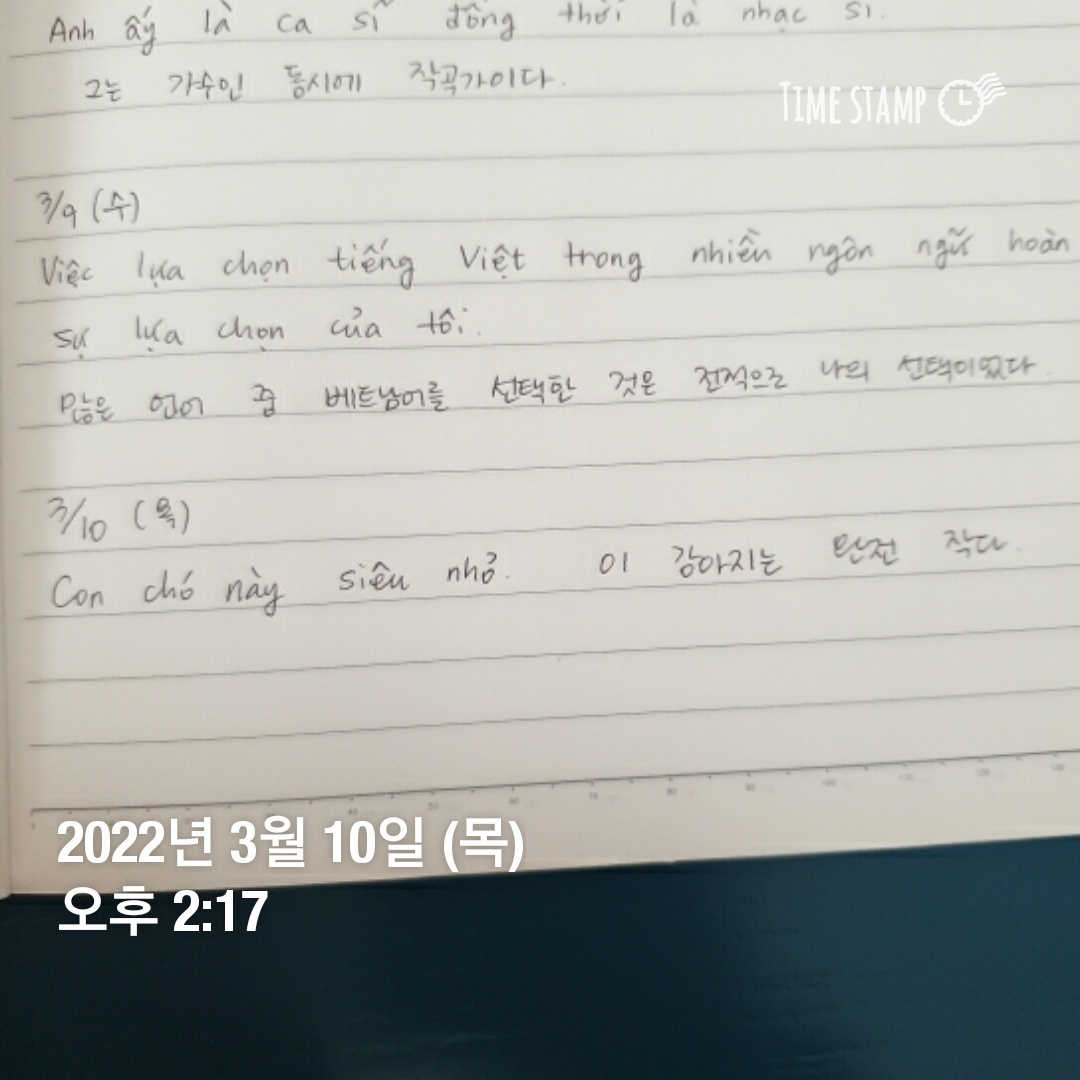 Anh ấy là ca sĩ đồng thời là nhạc sĩ.
그는 가수인 동시에 작곡가이다.
TIME STAMP
3/9 (수)
Việc lựa chọn tiếng Việt trong nhiền ngôn ngữ hoàn
sự lựa chọn của tôi.
많은 언어 중 베트남어를 선택한 것은 전적으로 나의 선택이었다.
3/10 (목)
Con chó này siêu nhỏ. 이 강아지는 완전 작다.
2022년 3월 10일 (목)
오후 2:17